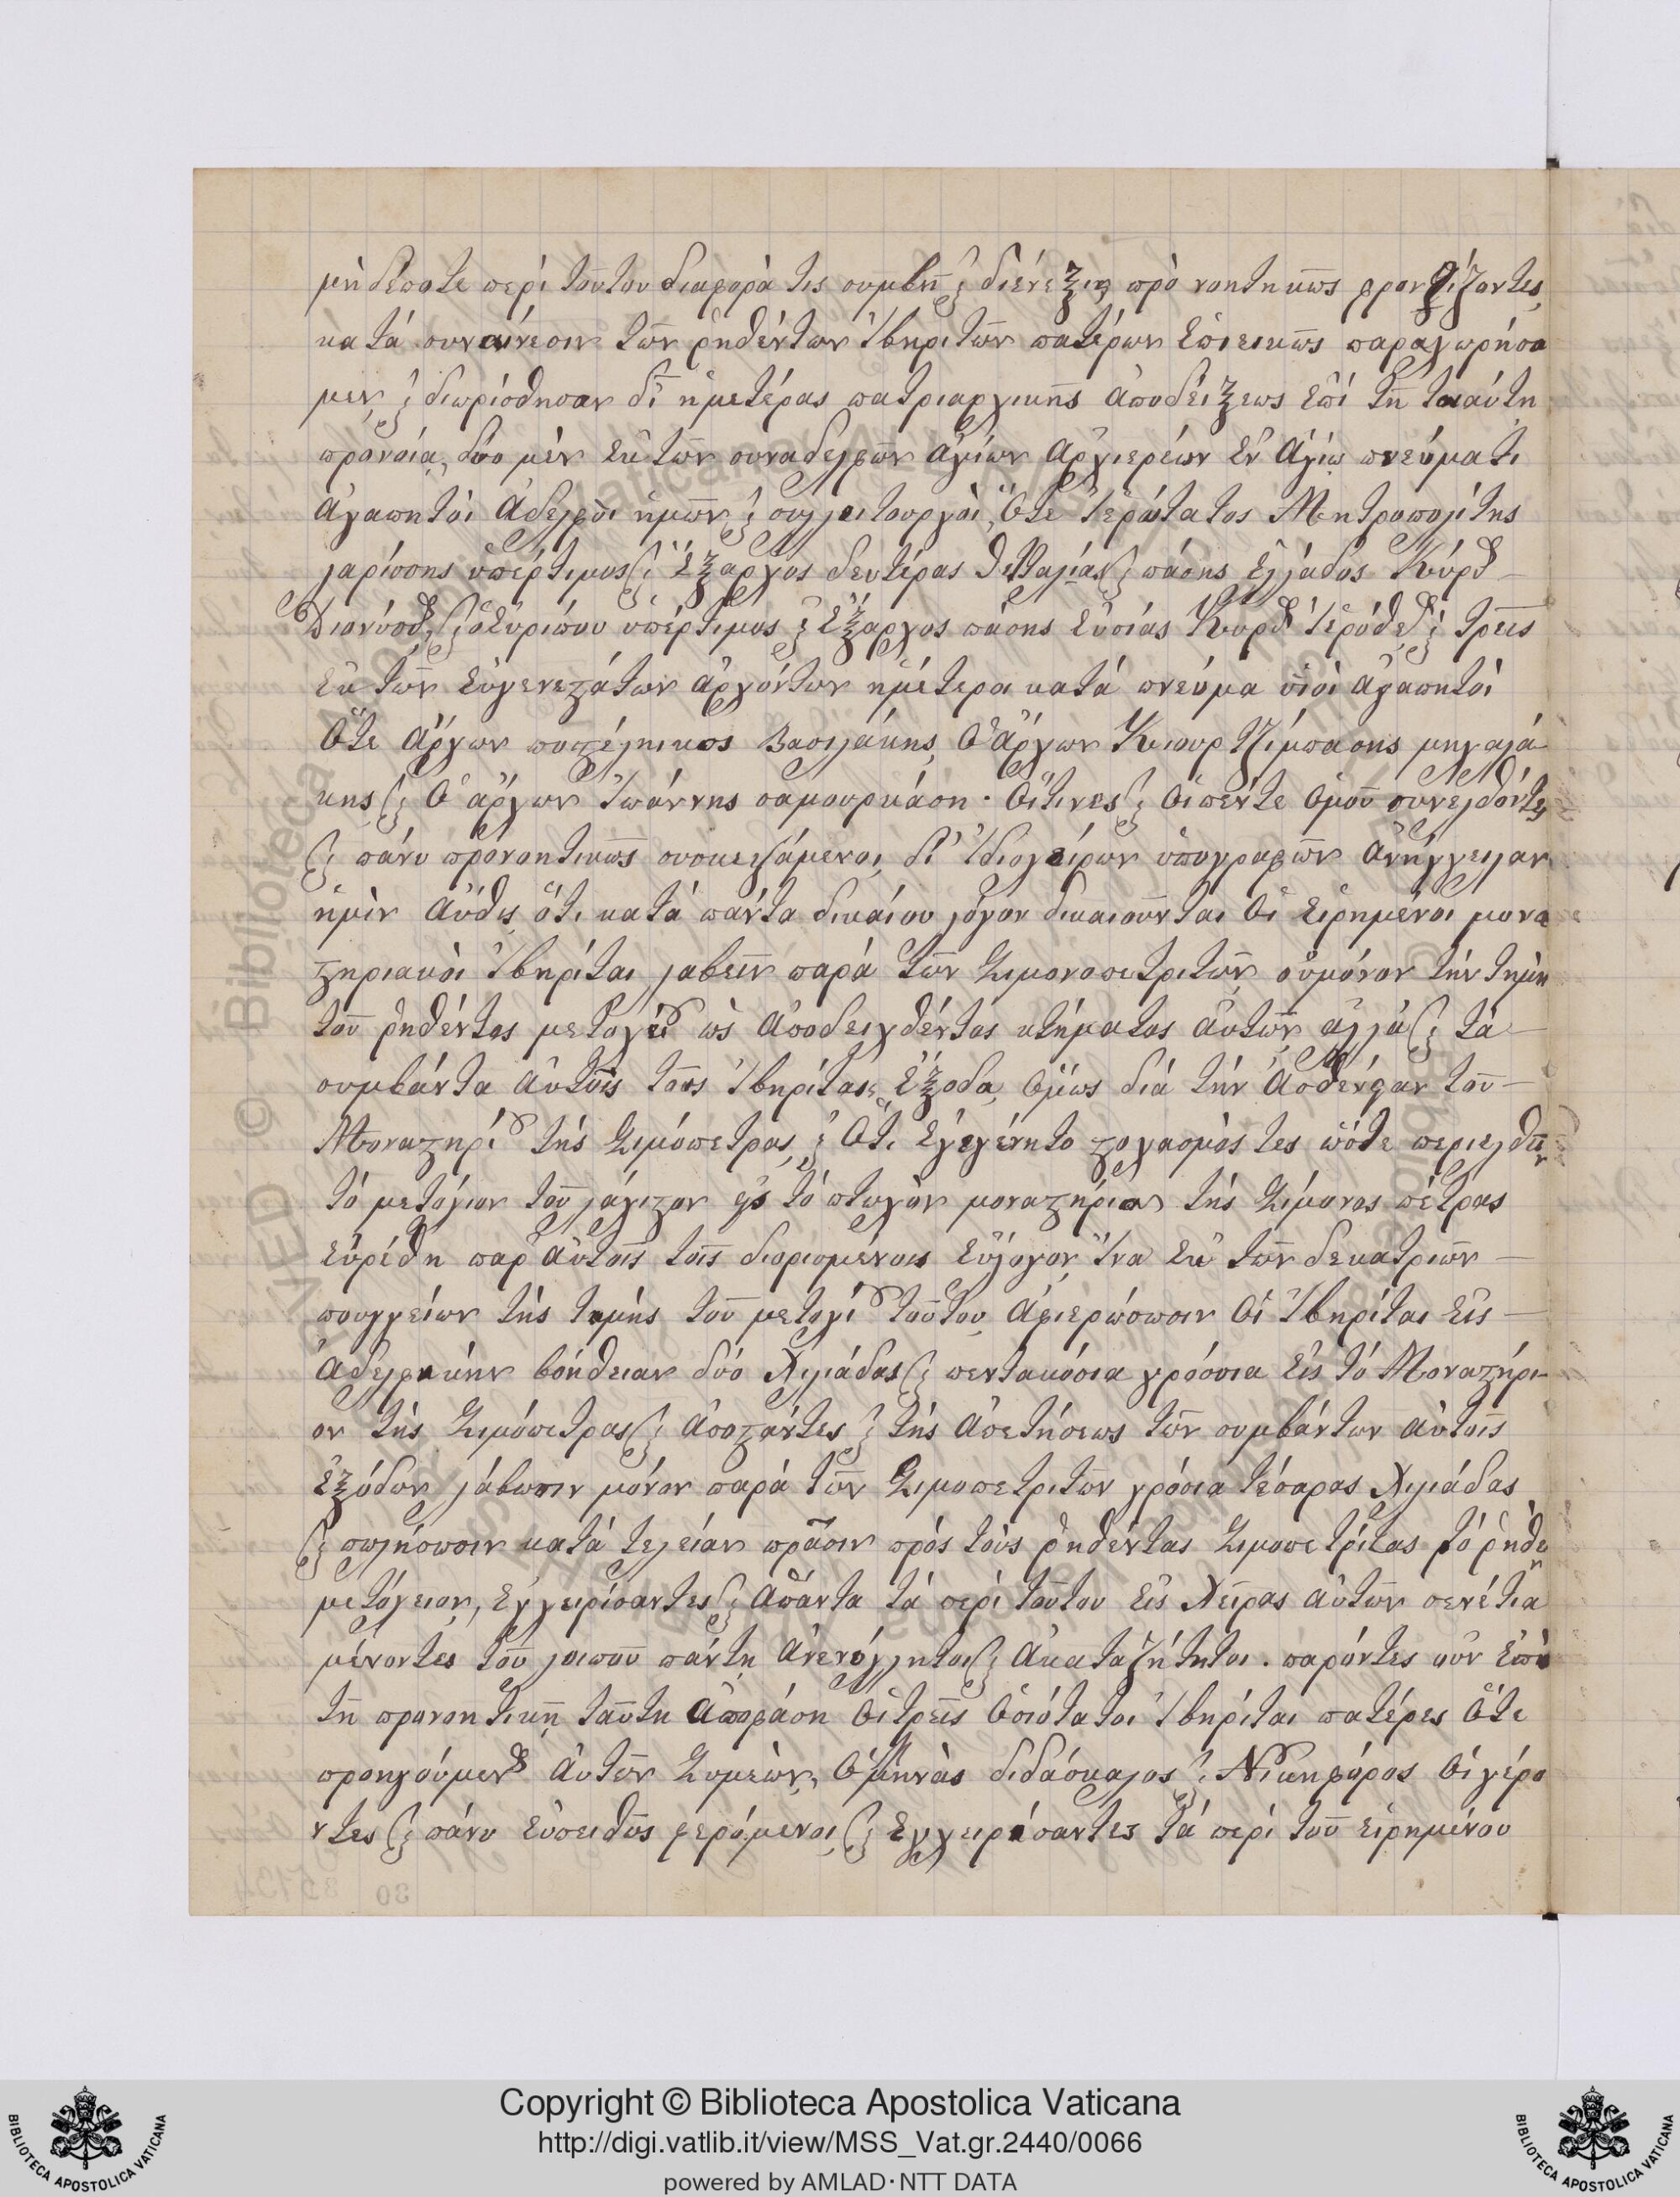 μὴ δέποτε περὶ τούτου διαφορὰ τις συμβῇ ϗ διένεξις προνοητηκῶς φροντίζοντες,
κατά συναίνεσιν τῶν ῥηθέντων Ἰβηριτῶν πατέρων ἐπιεικῶς παραχωρήσα
μεν, ϗ διωρίσθησαν δι' ἡμετέρας πατριαρχικῆς ἀποδείξεως ἐπί τῇ τοιαύτῃ
προνοίᾳ, δύο μὲν ἐκ τῶν συναδελφῶν ἁγίων ἀρχιερέων ἐν ἁγίῳ πνεύματι
ἀγαπητοὶ ἀδελφοὶ ἡμῶν ϗ συλλειτουργοὶ, ὅτε ἱερώτατος Μητροπολίτης
λαρίσσης ὑπέρτιμος ϗ ἔξαρχος δευτέρας θετταλίας ϗ πάσης ἑλλάδος Κύρȣ
Διονύσιȣ, ϗ ὁ Εὐρίπου ὑπέρτιμος ϗ ἔξαρχος πάσης εὐοίας Κυρȣ Ἱερόθεȣ, ϗ τρεῖς
ἐκ τῶν εὐγενεστάτων ἀρχόντων ἡμέτεροι κατά πνεύμα υἱοὶ ἀγαπητοὶ
ὅτε ἄρχων ποστέλνικος Βασιλάκης, ὁ ἄρχων Κιουρτζίμπασης μηχαλά
κης, ϗ ὁ ἄρχων Ἰωάννης σαμουρκάση· οἵτινες ϗ οἱ πέντε ὁμοῦ συνελθόντες
ϗ πάνυ προνοητικῶς συσκεψάμενοι, δι' ἰδιοχείρων ὑπογραφῶν ἀνήγγειλαν
ἡμὶν αὖθις ὅτι κατά πάντα δικαίου λόγον δικαιοῦνται οἱ εἰρημένοι μονα
στηριακοὶ Ἰβηρίται λαβεῖν παρά τῶν Σιμονοπετριτῶν, οὐμόνον τήν τημὴν
τοῦ ῥηθέντος μετοχίȣ ὡς ἀποδειχθέντος κτήματος αὐτῶν, ἀλλὰ ϗ τὰ
συμβάντα αὐτοῖς τοις Ἰβηρίταις ἔξοδα, ὅμως διά τήν ἀσθένειαν τοῦ
Μοναστηρίȣ τῆς Σιμόπετρας, ϗ ὅτι ἐγεγένητο στοχασμός τες ὥστε περιελθεῖν
τό μετόχιον τοῦ λάχιστον εἰς τό πτωχὸν μοναστήριον τῆς Σίμωνος πέτρας
εὑρέθη παρ' αὐτοῖς τοῖς διορισμένοις εὔλογον, ἵνα ἐκ τῶν δεκατριῶν
πουγγείων τῆς τημῆς τοῦ μετοχίȣ τούτου, ἀφιερώσωσιν οἱ Ἰβηρίται εἰς
ἀδελφικὴν βοήθειαν δύο χιλιάδας ϗ πεντακόσια γρόσσια εἰς τό Μοναστήρι
ον τῆς Σιμόπετρας, ϗ ἀποστάντες ϗ τῆς ἀπετήσεως τῶν συμβάντων αὐτοῖς
ἐξόδων λάβωσιν μόνον παρά τῶν Σιμοπετριτῶν γρόσια τέσαρας χιλιάδας
ϗ πωλήσωσιν κατά τελείαν πρᾶσιν πρὸς τοὺς ῥηθέντας Σιμοπετρίτας τό ῥηθὲν
μετόχειον, ἐγχειρίσαντες ϗ ἅπαντα τά περὶ τούτου εἰς χεῖρας αὐτῶν σενέτια
μένοντες τοῦ λοιποῦ πάντη ἀνενόχλητοι ϗ ἀκαταζήτητοι. παρόντες οὖν ἐπὶ
τῇ προνοητικῇ ταύτῃ ἀποφάση οἱ τρεῖς ὁσιότατοι Ἰβηρίται πατέρες ὅτε
προηγούμενȣ αὐτῶν Συμεών, ὁ μηνᾶς διδάσκαλος, ϗ Νικηφόρος οἱ γέρο
ντες, ϗ πάνυ εὐπειθῶς φερόμενοι, ϗ ἐγχειρίσαντες τά περί τοῦ εἰρημένου